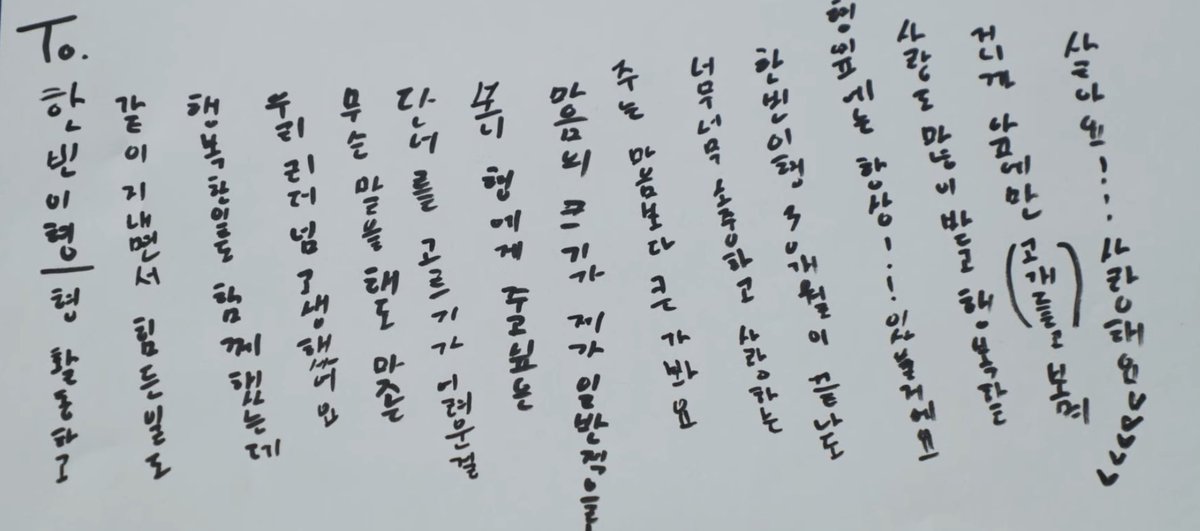 To.
한빈이형 형 활동하고
같이 지내면서 힘든일도
행복한일도 함께했는데
우리 리더님 고생했어요
무슨 말을 해도 마준
단어를 고르기가 어려운걸
보니 형에게 주고싶은
마음의 크기가 제가 일반적으로
주는 마음보다 큰가봐요
너무너무 소중하고 사랑하는
한빈이형 30개월이 끝나도
형옆에는 항상!!! 있을거에요
사랑도 많이 받고 행복하는
거니까 앞에만 (고개들고) 보며
살아요!... 사랑해요